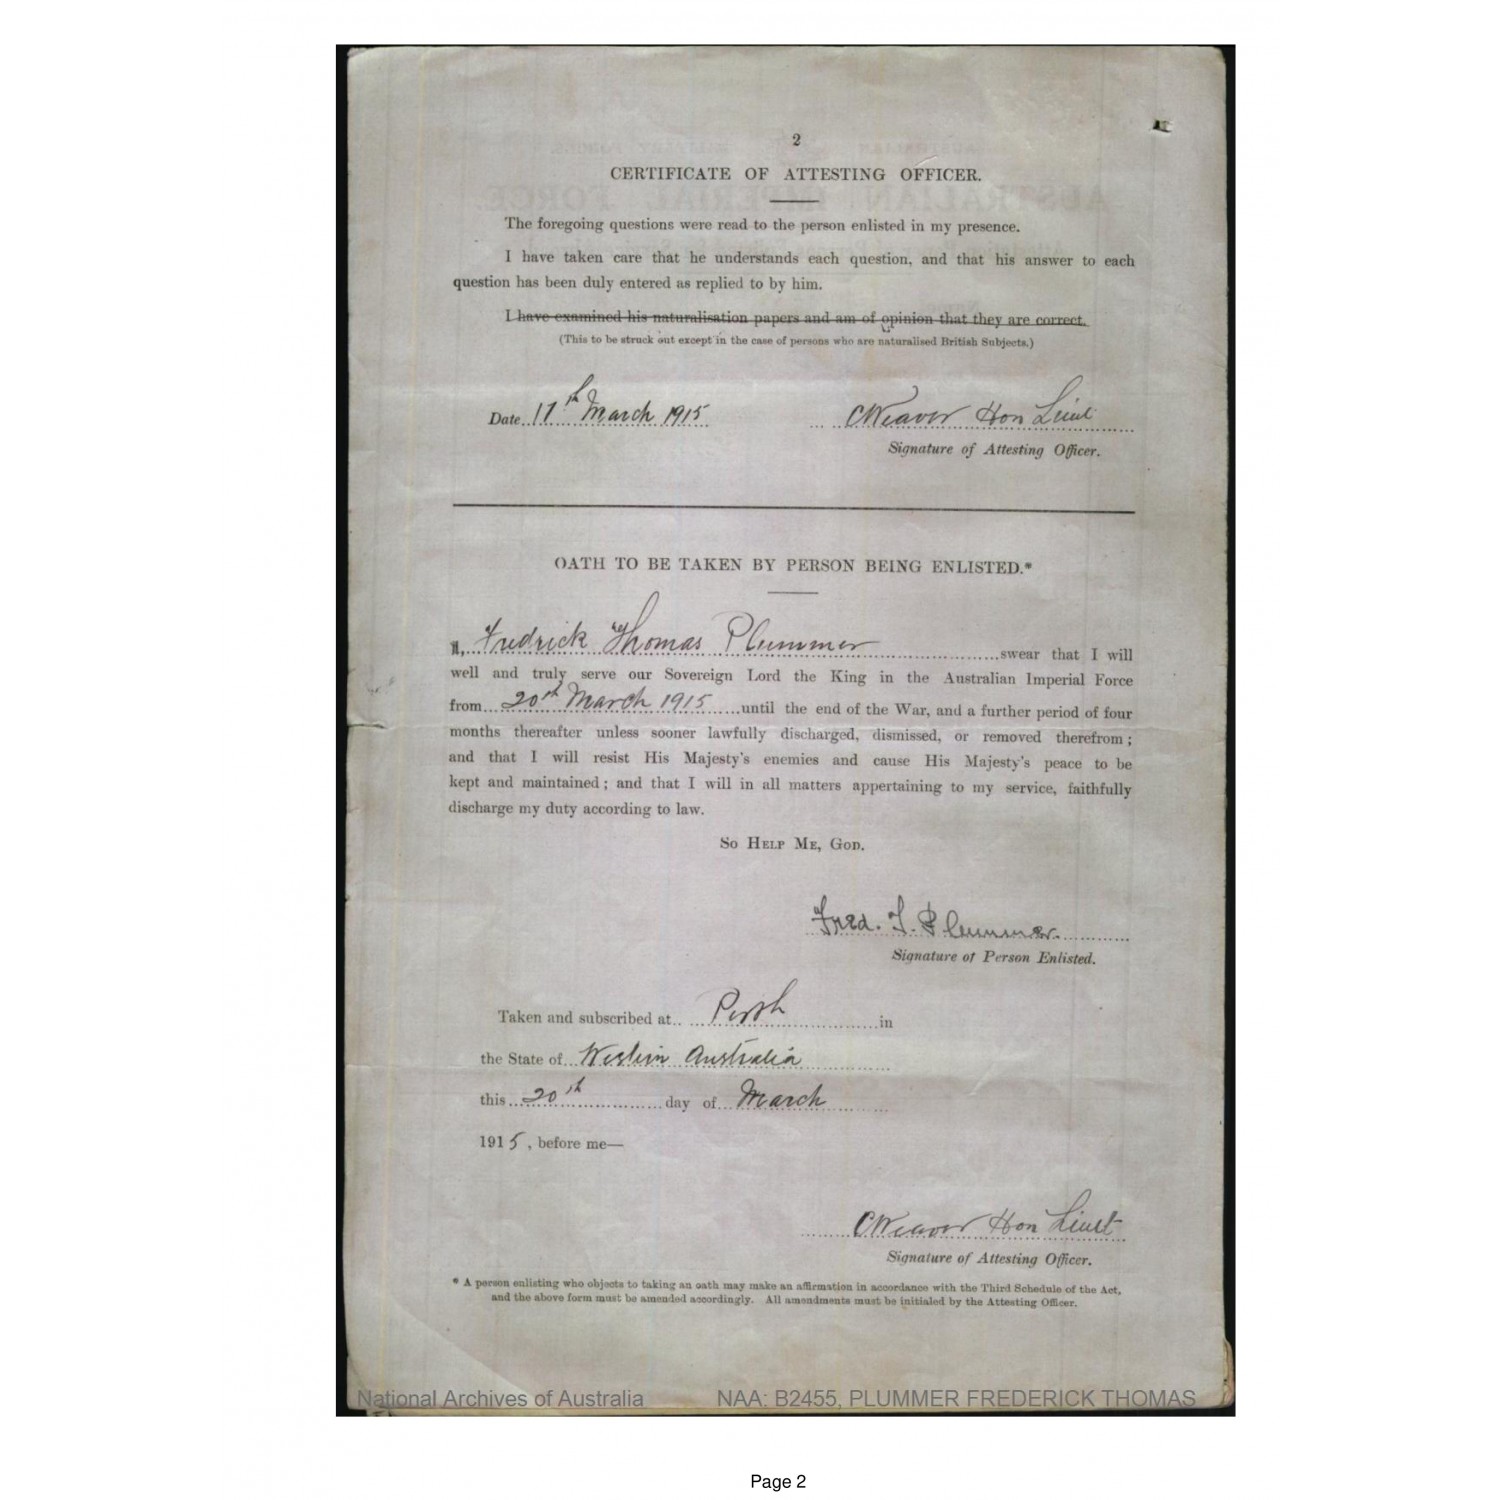 2
CERTIFICATE OF ATTESTING OFFICER.
The foregoing questions were read to the person enlisted in my presence.
I have taken care that he understands each question, and that his answer to each
question has been duly entered as replied to by him.
I have examined his naturalisation papers and am of opinion that they are correct.
(This to be struck out except in the case of persons who are naturalised British Subjects.)
Date 17th March 1915 CWeaver Hon Lieut
Signature of Attesting Officer.
OATH TO BE TAKEN BY PERSON BEING ENLISTED.*
I, Fredrick Thomas Plummer swear that I will
well and truly serve our Sovereign Lord the King in the Australian Imperial Force
from 20th March 1915 until the end of the War, and a further period of four
months thereafter unless sooner lawfully discharged, dismissed, or removed therefrom;
and that I will resist His Majesty's enemies and cause His Majesty's peace to be
kept and maintained; and that I will in all matters appertaining to my service, faithfully
discharge my duty according to law.
So Help Me, God.
Fred. T. Plummer.
Signature of Person Enlisted.
Taken and subscribed at Perth in
the State of Western Australia
this 20th day of March
1915, before me—
CWeaver Hon Lieut
Signature of Attesting Officer.
* A person enlisting who objects to taking an oath may make an affirmation in accordance with the Third Schedule of the Act,
and the above form must be amended accordingly. All amendments must be initialed by the Attesting Officer.
National Archives of Australia NAA: B2455, PLUMMER FREDERICK THOMAS
Page 2